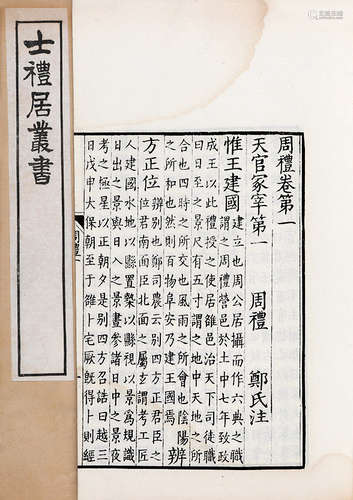 士禮居叢書
周禮卷第一
天官冢宰第一 周禮 鄭氏注
惟王建國 建立也周公居攝而作六典之職
謂之周禮營邑於土中七年致政
成王以此禮授之使居雒邑治天下司徒職
曰日至之景尺有五寸謂之地中天地之所
合也四時之所交也風雨之所會也陰陽
之所和也然則百物阜安乃建王國焉 辨
方正位 辨別也鄭司農云別四方正君臣之
位君南面臣北面之屬玄謂考工匠
人建國水地以縣置槷以縣視以景為規識
日出之景與日入之景晝參諸日中之景夜
考之極星以正朝夕是別四方召誥曰越三
日戊申大保朝至于雒卜宅厥旣得卜則經
周禮一